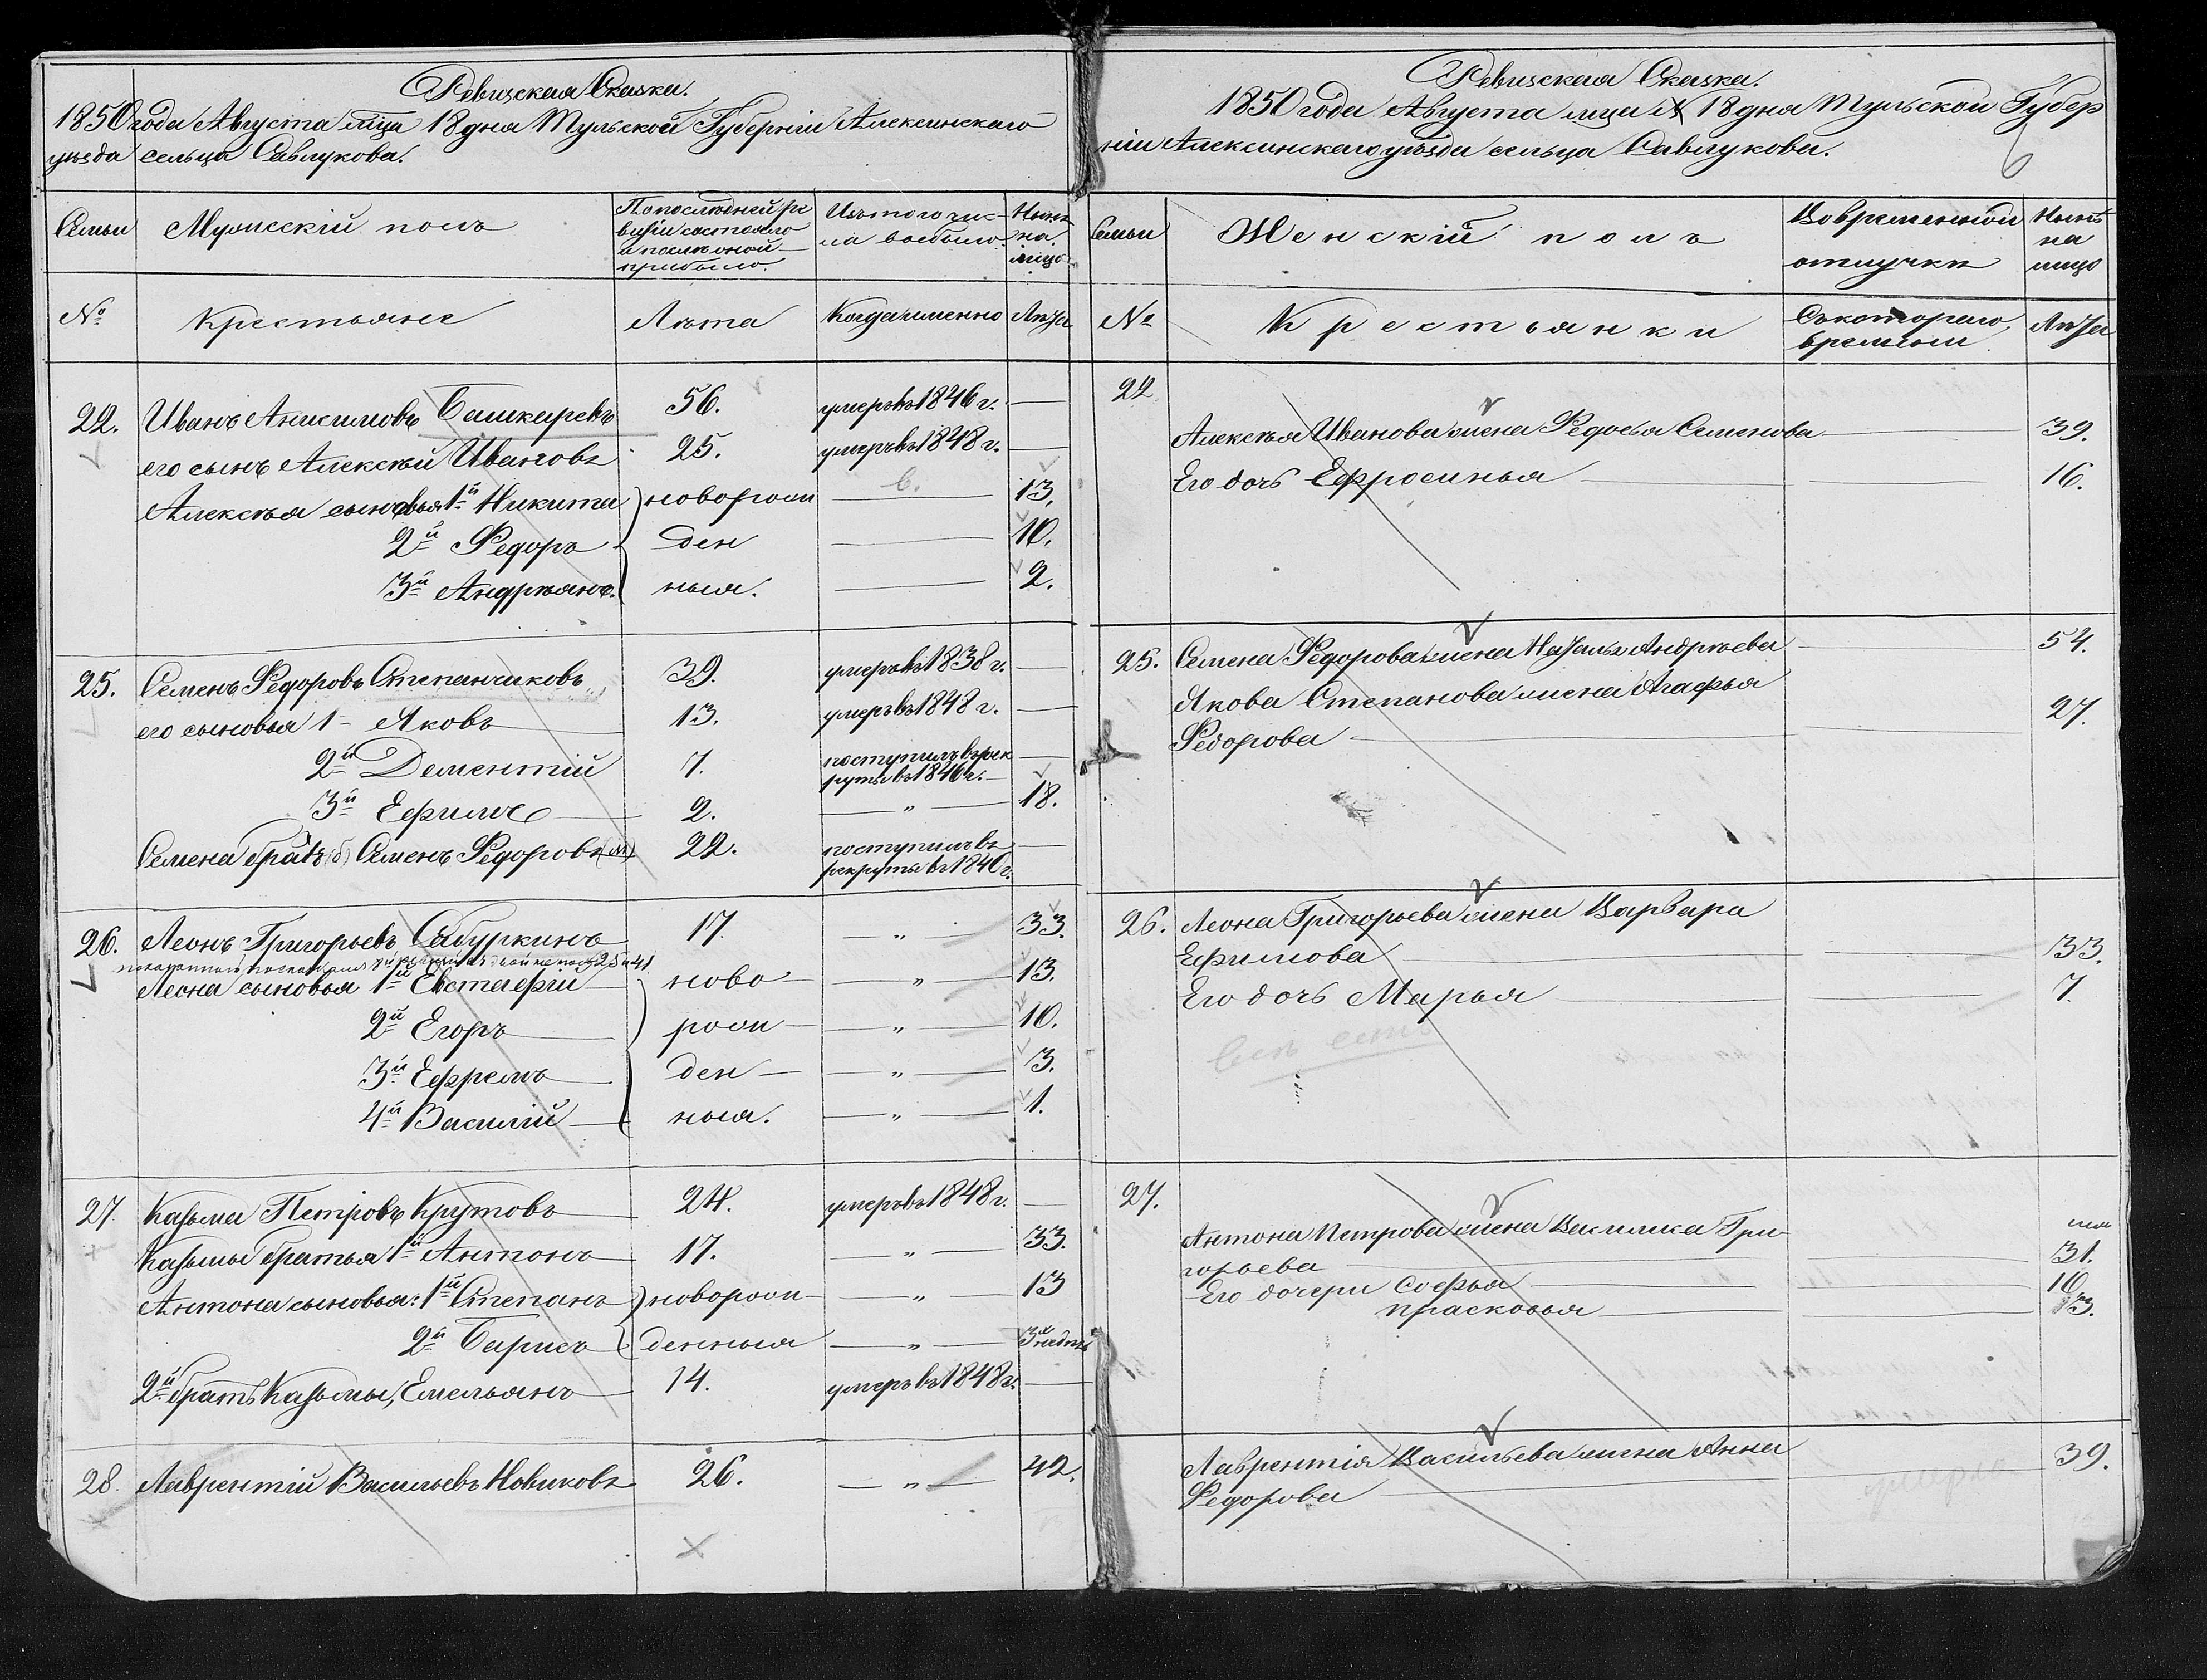 Ревизская Сказка.
1850 года Августа м̃ца 18 дня Тульской Губерніи Алексинскаго
уѣзда сельца Савлукова.
Семьи
Мужескій полъ
По последней ре
визіи состояло
и после оной
прибыло.
Изъ того чис-
ла выбыло
Ныне
на
лицо
№
Крестьяне
Лѣта
Когда именно
Лѣта
22. Иванъ Анисимовъ Башкиревъ 56. умеръ въ 1846 г. —
его сынъ Алексѣй Ивановъ 25. умеръ въ 1848 г. —
Алексѣя сыновья 1й Никита новорож — 13.
2й Федоръ ден — 10.
3й Андрѣянъ. ныя. — 2.
25. Семенъ Федоровъ Степанчиковъ 39. умеръ въ 1838 г. —
его сыновья 1- Яковъ 13. умеръ въ 1848 г. —
2й Дементій 7. поступилъ въ рек
руты въ 1846 г. —
3й Ефимъ 2. — „ — 18.
Семена братъ (б) Семенъ Федоровъ (м) 22. поступилъ въ —
рекруты въ 1840 г.
26. Леонъ Григорьевъ Сабуркинъ 17. — „ — 33.
Леона сыновья 1й Евстафій ново- — „ — 13.
2й Егоръ рож — „ — 10.
3й Ефремъ ден — „ — 3.
4й Василій ныя. — „ — 1.
27. Казьма Петровъ Крутовъ 24. умеръ въ 1848 г. —
Казьмы братья 1й Антонъ 17. — „ — 33.
Антона сыновья: 1й Степанъ новорож — „ — 13
2й Барисъ денныя — „ — 3х недель
2й братъ Казьмы, Емельянъ 14. умеръ въ 1848 г. —
28. Лаврентій Васильевъ Новиковъ 26. — „ — 42.
Ревизская Сказка.
1850 года Августа м̃ца 18 дня Тульской Губер
ніи Алексинскаго уѣзда сельца Савлукова.
Семьи
Женскій полъ
Во временной
отлучке
Ныне
на
лицо
№
Крестьянки
Съ котораго
времени
Лѣта
22
Алексѣя Иванова жена Федосья Семенова — 39.
Его дочь Ефросинья — 16.
25. Семена Федорова жена Наталья Андрѣева — 54.
Якова Степанова жена Агафья
Федорова — 27.
26. Леона Григорьева жена Варвара
Ефимова — 33.
Его дочь Марья — 7.
все есть
27.
Антона Петрова жена Василиса Гри-
горьева — 31.
Его дочери Софья — 10
Прасковья — 3.
Лаврентія Васильева жена Анна — 39.
Федорова —
умерла